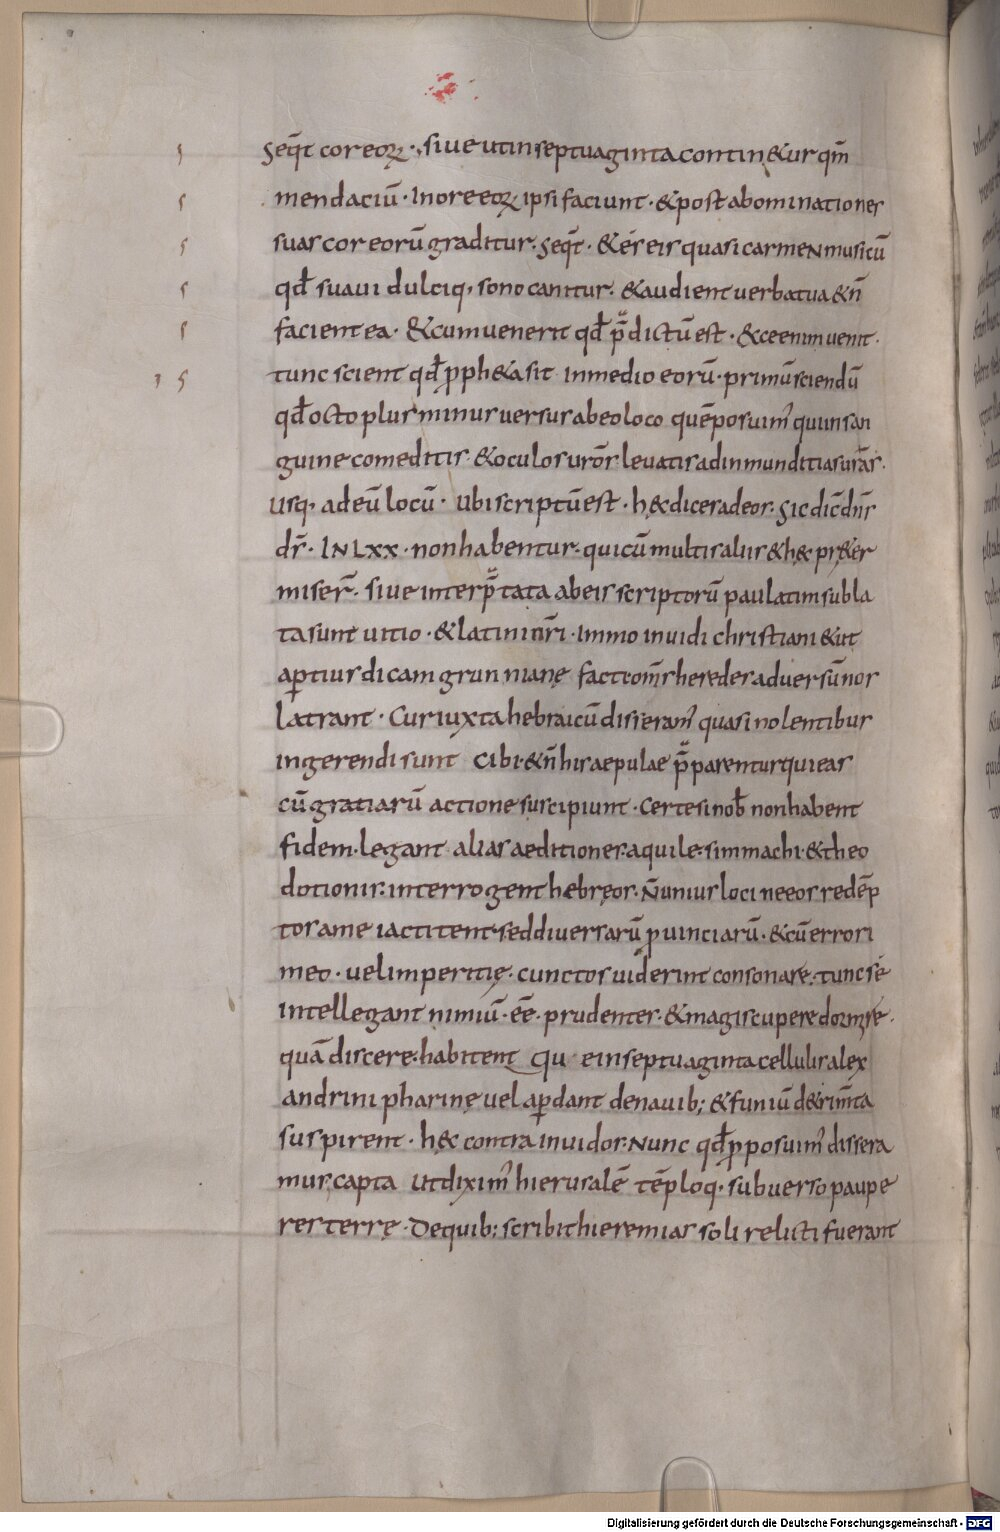 seq̄t cor eoꝝ · siue ut in septuaginta contin&ur qm̄
mendaciū · In ore eoꝝ ipsi faciunt · & post abominationes
suas cor eorū graditur · seq̄t · & és eis quasi carmen musicū
qd̄ suaui dulciq· sono canitur · & audient uerba tua & n̄
facient ea · & cum uenerit qd̄ p̄dictū est · & ecce enim uenit ·
tunc scient qd̄ ꝓph&a sit in medio eorū · primū sciendū
qd̄ octo plus minus uersus ab eo loco quē posuim᾽ qui in san
guine comeditis · & oculos urōs leuatis ad inmunditias urās ·
usq· ad eū locū · ubi scriptū est · hęc dices ad eos · sic dic̄ dn̄s
ds̄ · IN LXX · non habentur · quicū multis aliis & hęc pręter
miser̄ · siue interp̄tata ab eis scriptorū paulatim subla
ta sunt uitio · & latini nr̄i · Immo inuidi christiani & ut
aptius dicam grunnianę factionis heredes aduersū nos
latrant · Cur iuxta hebraicū disseram᾽ quasi nolentibus
ingerendi sunt cibi · & n̄ his aepulae p̄parentur qui eas
cū gratiarū actione suscipiunt · Certe si nob̄ non habent
fidem · legant alias aeditiones aquile · simmachi · & theo
dotionis · interrogent hebręos · N̄ unius loci ne eos redēp
tos a me iactitent · sed diuersarū ꝓuinciarū · & cū errori
meo · uel imperitię · cunctos uiderint consonare · tunc sé
intellegant nimiū · eē · prudentes · & magis cupere dormire ·
quā discere · habitent qu e in septuaginta cellulis alex
andrini pharinę uel apdant de nauib; & funiū d&rim̄ta
suspirent · hęc contra inuidos · Nunc qd̄ ꝓposuim᾽ dissera
mus capta ut diximˀ hierusalē tēploq· subuerso paupe
res terrę · De quib; scribit hieremias soli relicti fuerant
Digitalisierung gefördert durch die Deutsche Forschungsgemeinschaft - DFG